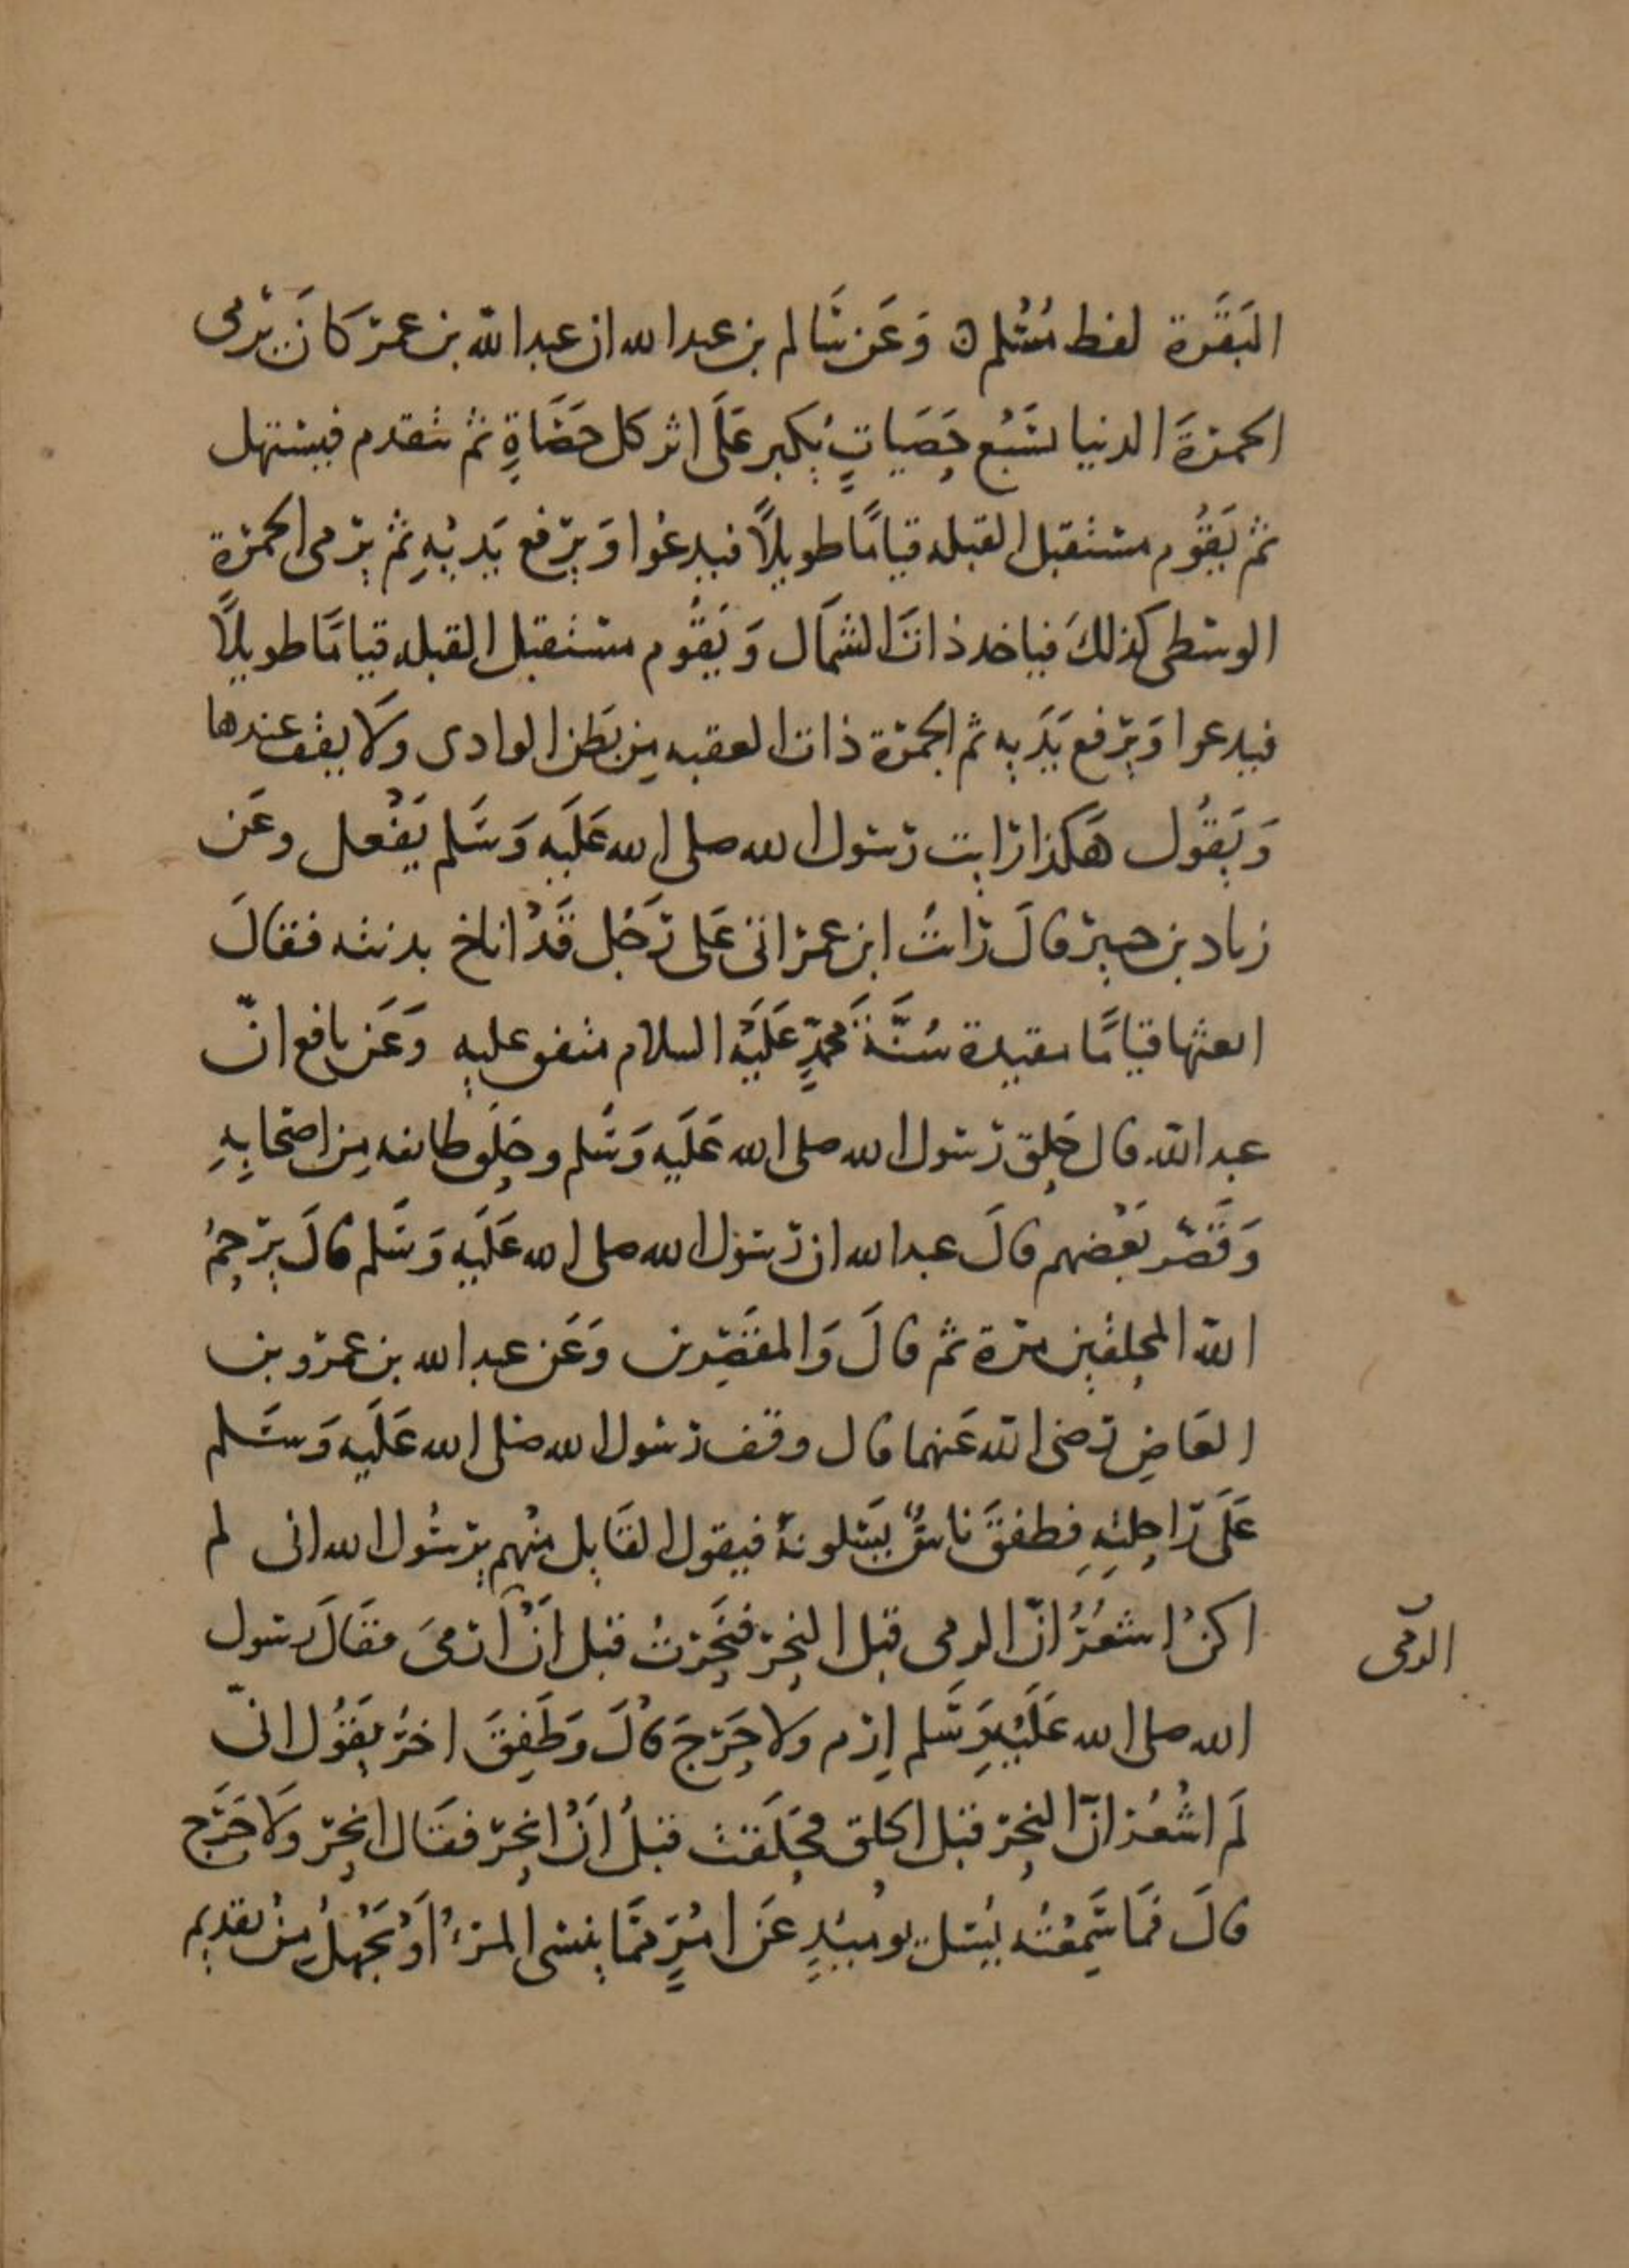 البَقَرَة لفظ مُسْلم ٥ وَعَن سَالم بن عبد الله ان عبد الله بن عمر كَانَ يَرمى
الجمرَةَ الدنيا بسَبْع حَصَياتٍ يُكَبر عَلَى اثر كل حَصَاةٍ ثم يتقدم فيستهل
ثم يَقُوم مستقبل القبله قيامًا طويلًا فيدعُوا وَيَرفع يَدَيْهِ ثم يرمى الجمرَة
الوسطى كذلكَ فياخد ذاتَ الشمَال وَيَقُوم مستقبل القبله قيامًا طويلًا
فيدعوا وَيَرفع يَدَيه ثم الجمرَة ذات العقبه مِن بَطن الوادى وَلَا يقف عندها
وَيَقُول هَكَذا رَايت رَسول الله صلى الله عَلَيه وَسَلم يَفْعل وعَن
زياد بن جبير قالَ رَايتُ ابن عمر اتى عَلى رَجُل قَدْ اناخ بدنته فقالَ
ابعثها قيامًا مقيدة سُنَّةَ مُحَمَّدٍ عَلَيْهِ السلام متفق عليه وَعَن نافع انّ
عبد الله قال حَلق رَسول الله صلى الله عَلَيه وَسَلم وحَلَق طائفه مِن اصحَابِهِ
وَقَصَّر بَعْضهم قالَ عبد الله ان رَسُول الله صلى الله عَلَيه وَسَلم قالَ يرْحمُ
اللهُ المحلقين مرة ثم قالَ وَالمقَصِّرين وَعَن عبد الله بن عمرو بن
العَاصِ رَضى الله عَنهما قال وقف رَسُول الله صَلى الله عَلَيه وَسَلم
عَلَى رَاحِلتِهِ فطفقَ ناسٌ يَسَلونهُ فيقول القَايل منْهم يرَسُول الله انى لم
اكنْ اشعُرُ انّ الرمى قبل النحر فنَحَرْتُ قبل اَنْ اَرْمىَ فقَالَ رسول
الرّمى
الله صلى الله عَلَيْهِ وَسَلم اِرْم ولا حَرَجَ قالَ وَطَفِقَ اخرُ يقَوُل انّى
لَم اشْعُر انّ النحر قبل الحلق فحَلَقت قبلُ اَنْ انحَر فقَال انحر وَلَا حَرَج
قالَ فمَا سَمِعْتُه يُسَل يومَيذٍ عَن امْرٍ ممَّا ينسى المرْءُ اَوْ يَجْهلُ مِنْ تقديم